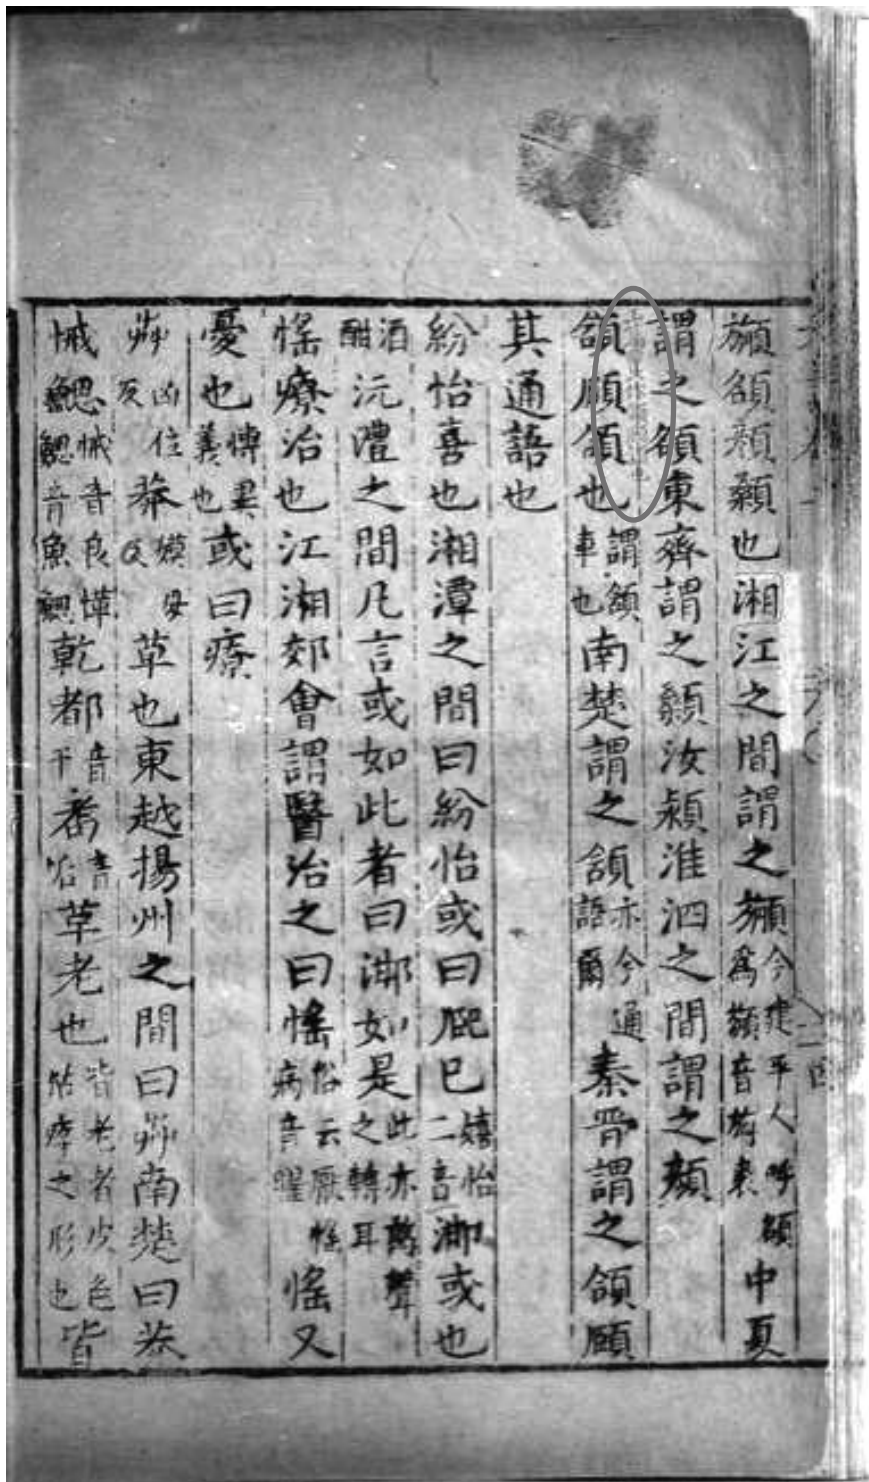 䫙額顏顙也湘江之間謂之䫙今建平人呼額爲䫙音旃裘中夏
謂之額東齊謂之顙汝潁淮泗之間謂之顏
頷頤頜也謂頷車也南楚謂之頷亦今通語爾秦晉謂之頜頤
其通語也
紛怡喜也湘潭之間曰紛怡或曰巸巳嬉怡二音湍或也
酒酣沅澧之間凡言或如此者曰湍如是此亦憨聲之轉耳
愮療治也江湘郊會謂醫治之曰愮俗云厭愮病音曜愮又
憂也博異義也或曰療
芔凶位反莽嫫母反草也東越揚州之間曰芔南楚曰莽
悈鰓悈音良悈鰓音魚鰓乾都音干耇音垢革老也皆老者皮色枯瘁之形也皆